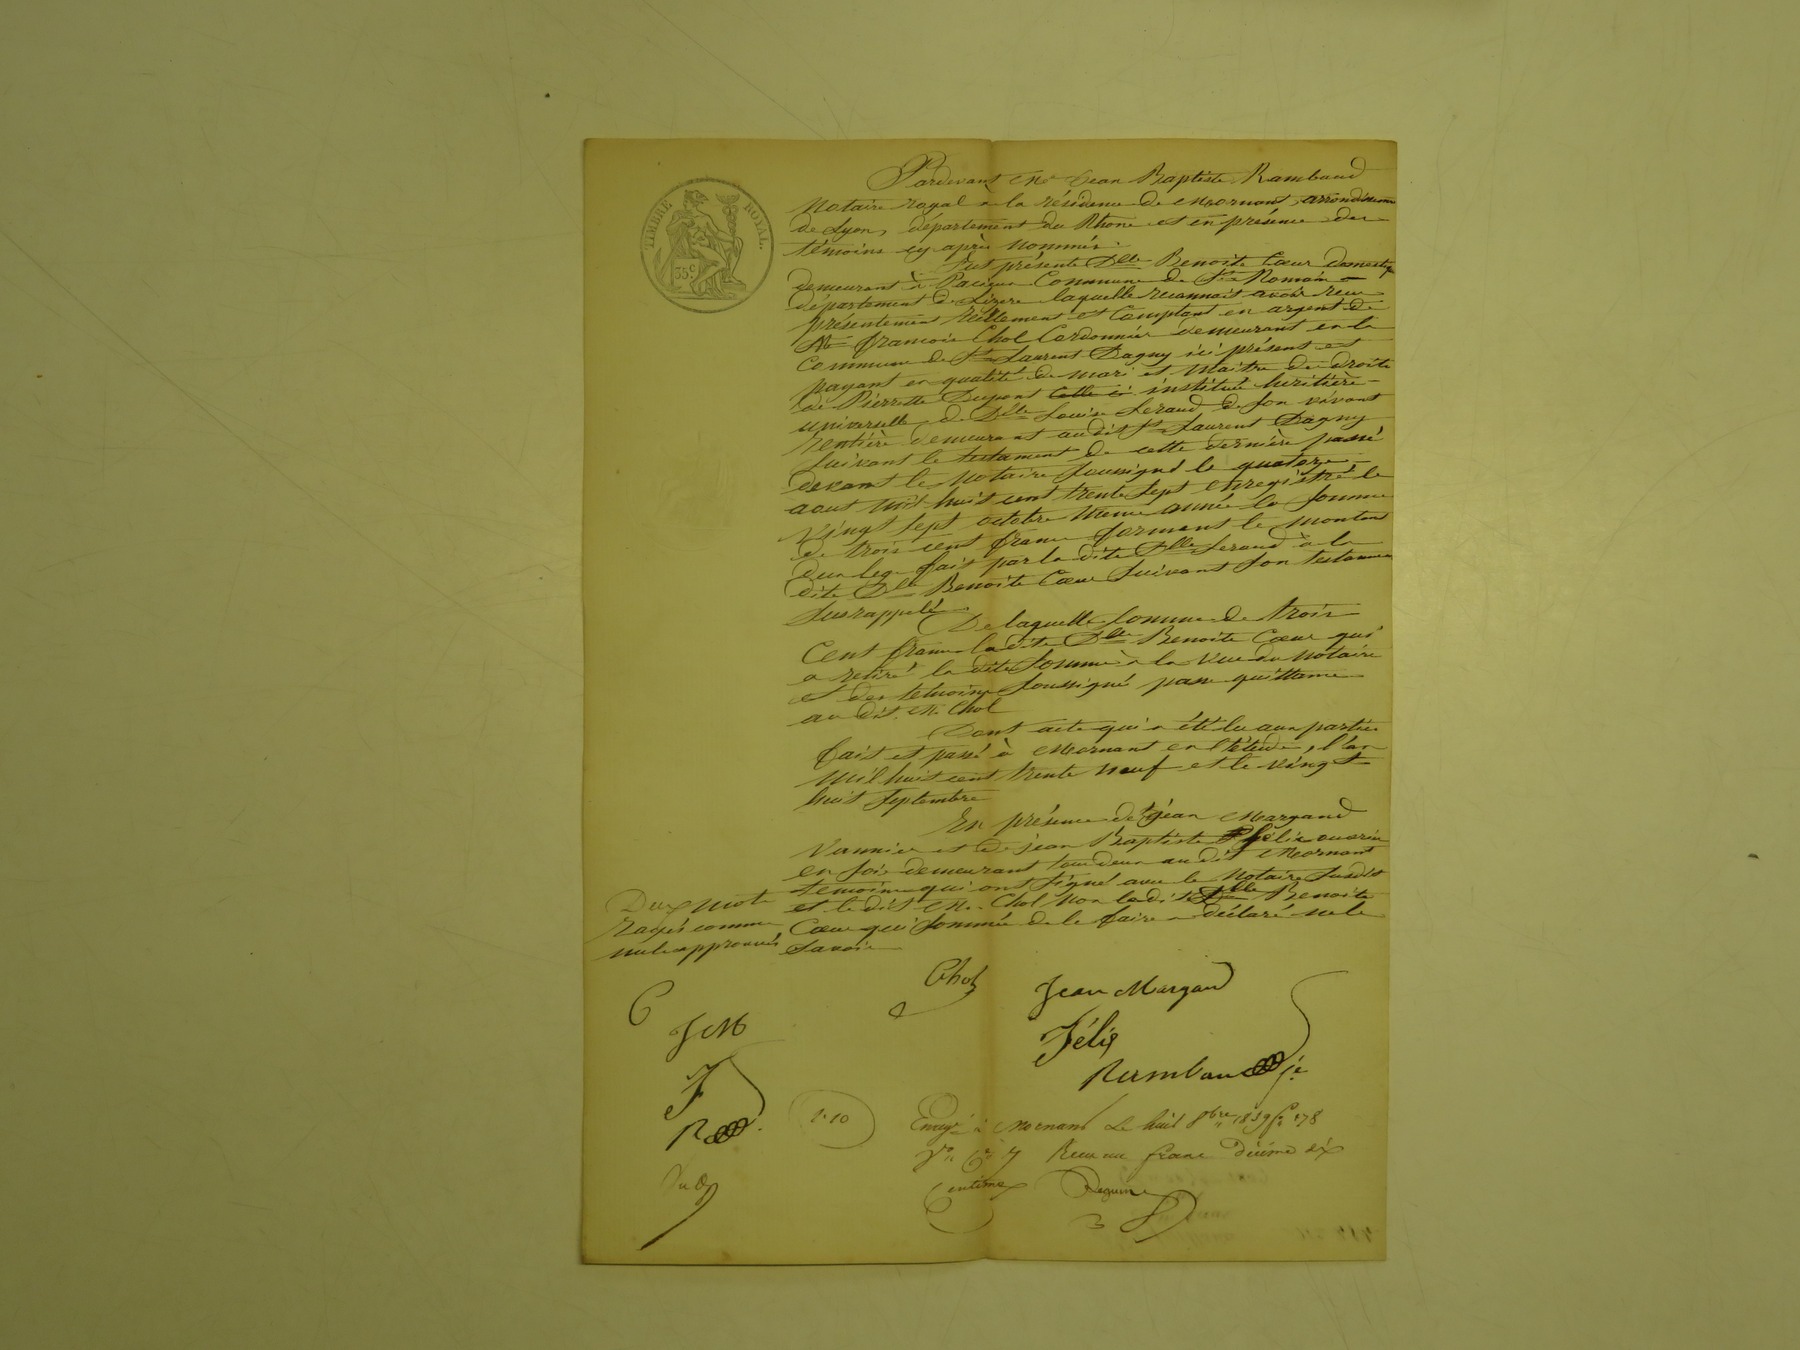 TIMBRE ROYAL.
35c
Pardevant Me Jean Baptiste Rambaud
Notaire royal a la résidence de Mornant, arrondissem
de Lyon, département du Rhone et en présence des
témoins cy après nommés.
Fut présente Dlle Benoite Cœur domestiq
demeurant à Commune de St Romain
département de Lizere laquelle reconnait avoir recu
présentement réellement et comptant en argent de
Mr francois Chol Cordonnier demeurant en la
Commune de St Laurent Dagny ici présent et
payant en qualité de mari et maitre des droits
de Pierrette Dupont celle ci instituée héritière
universelle de Dlle Louise Feraud de son vivant
rentière demeurant audit St Laurent Dagny
suivant le testament de cette dernière passé
devant le Notaire soussigné le quatorze
aout mil huit cent trente sept enregistré le
vingt sept octobre meme année la somme
de trois cent francs formant le montant
dun legs fait par la dite Dlle Feraud à la
dite Dlle Benoite Cœur suivant son testamen
susrappelé
De laquelle somme de trois
Cent francs la dite Dlle Benoite Cœur qui
a retiré la dite somme à la vue du Notaire
et des témoins soussigné passe quittance
au dit Mr Chol
Dont acte qui a été lu aux parties
fait et passé à Mornant en l'étude, l'an
mil huit cent trente neuf et le vingt
huit septembre
En présence de Jean Margand
Vannier et de jean Baptiste Félix ouvrier
en soie demeurant tous deux au dit Mornant
témoins qui ont signé avec le Notaire susdit
et le dit Mr Chol non la dite Dlle Benoite
Cœur qui sommée de le faire a déclaré ne le
savoir
Deux mots
rayés comme
nuls approuvés
Chol
Jean Margand
Félix
Rambaud
C
JM
F
R
1.10
Enregé à Mornant le huit 8bre 1839 fo 178
Vo Co 7 Recu un franc décime dix
Centimes